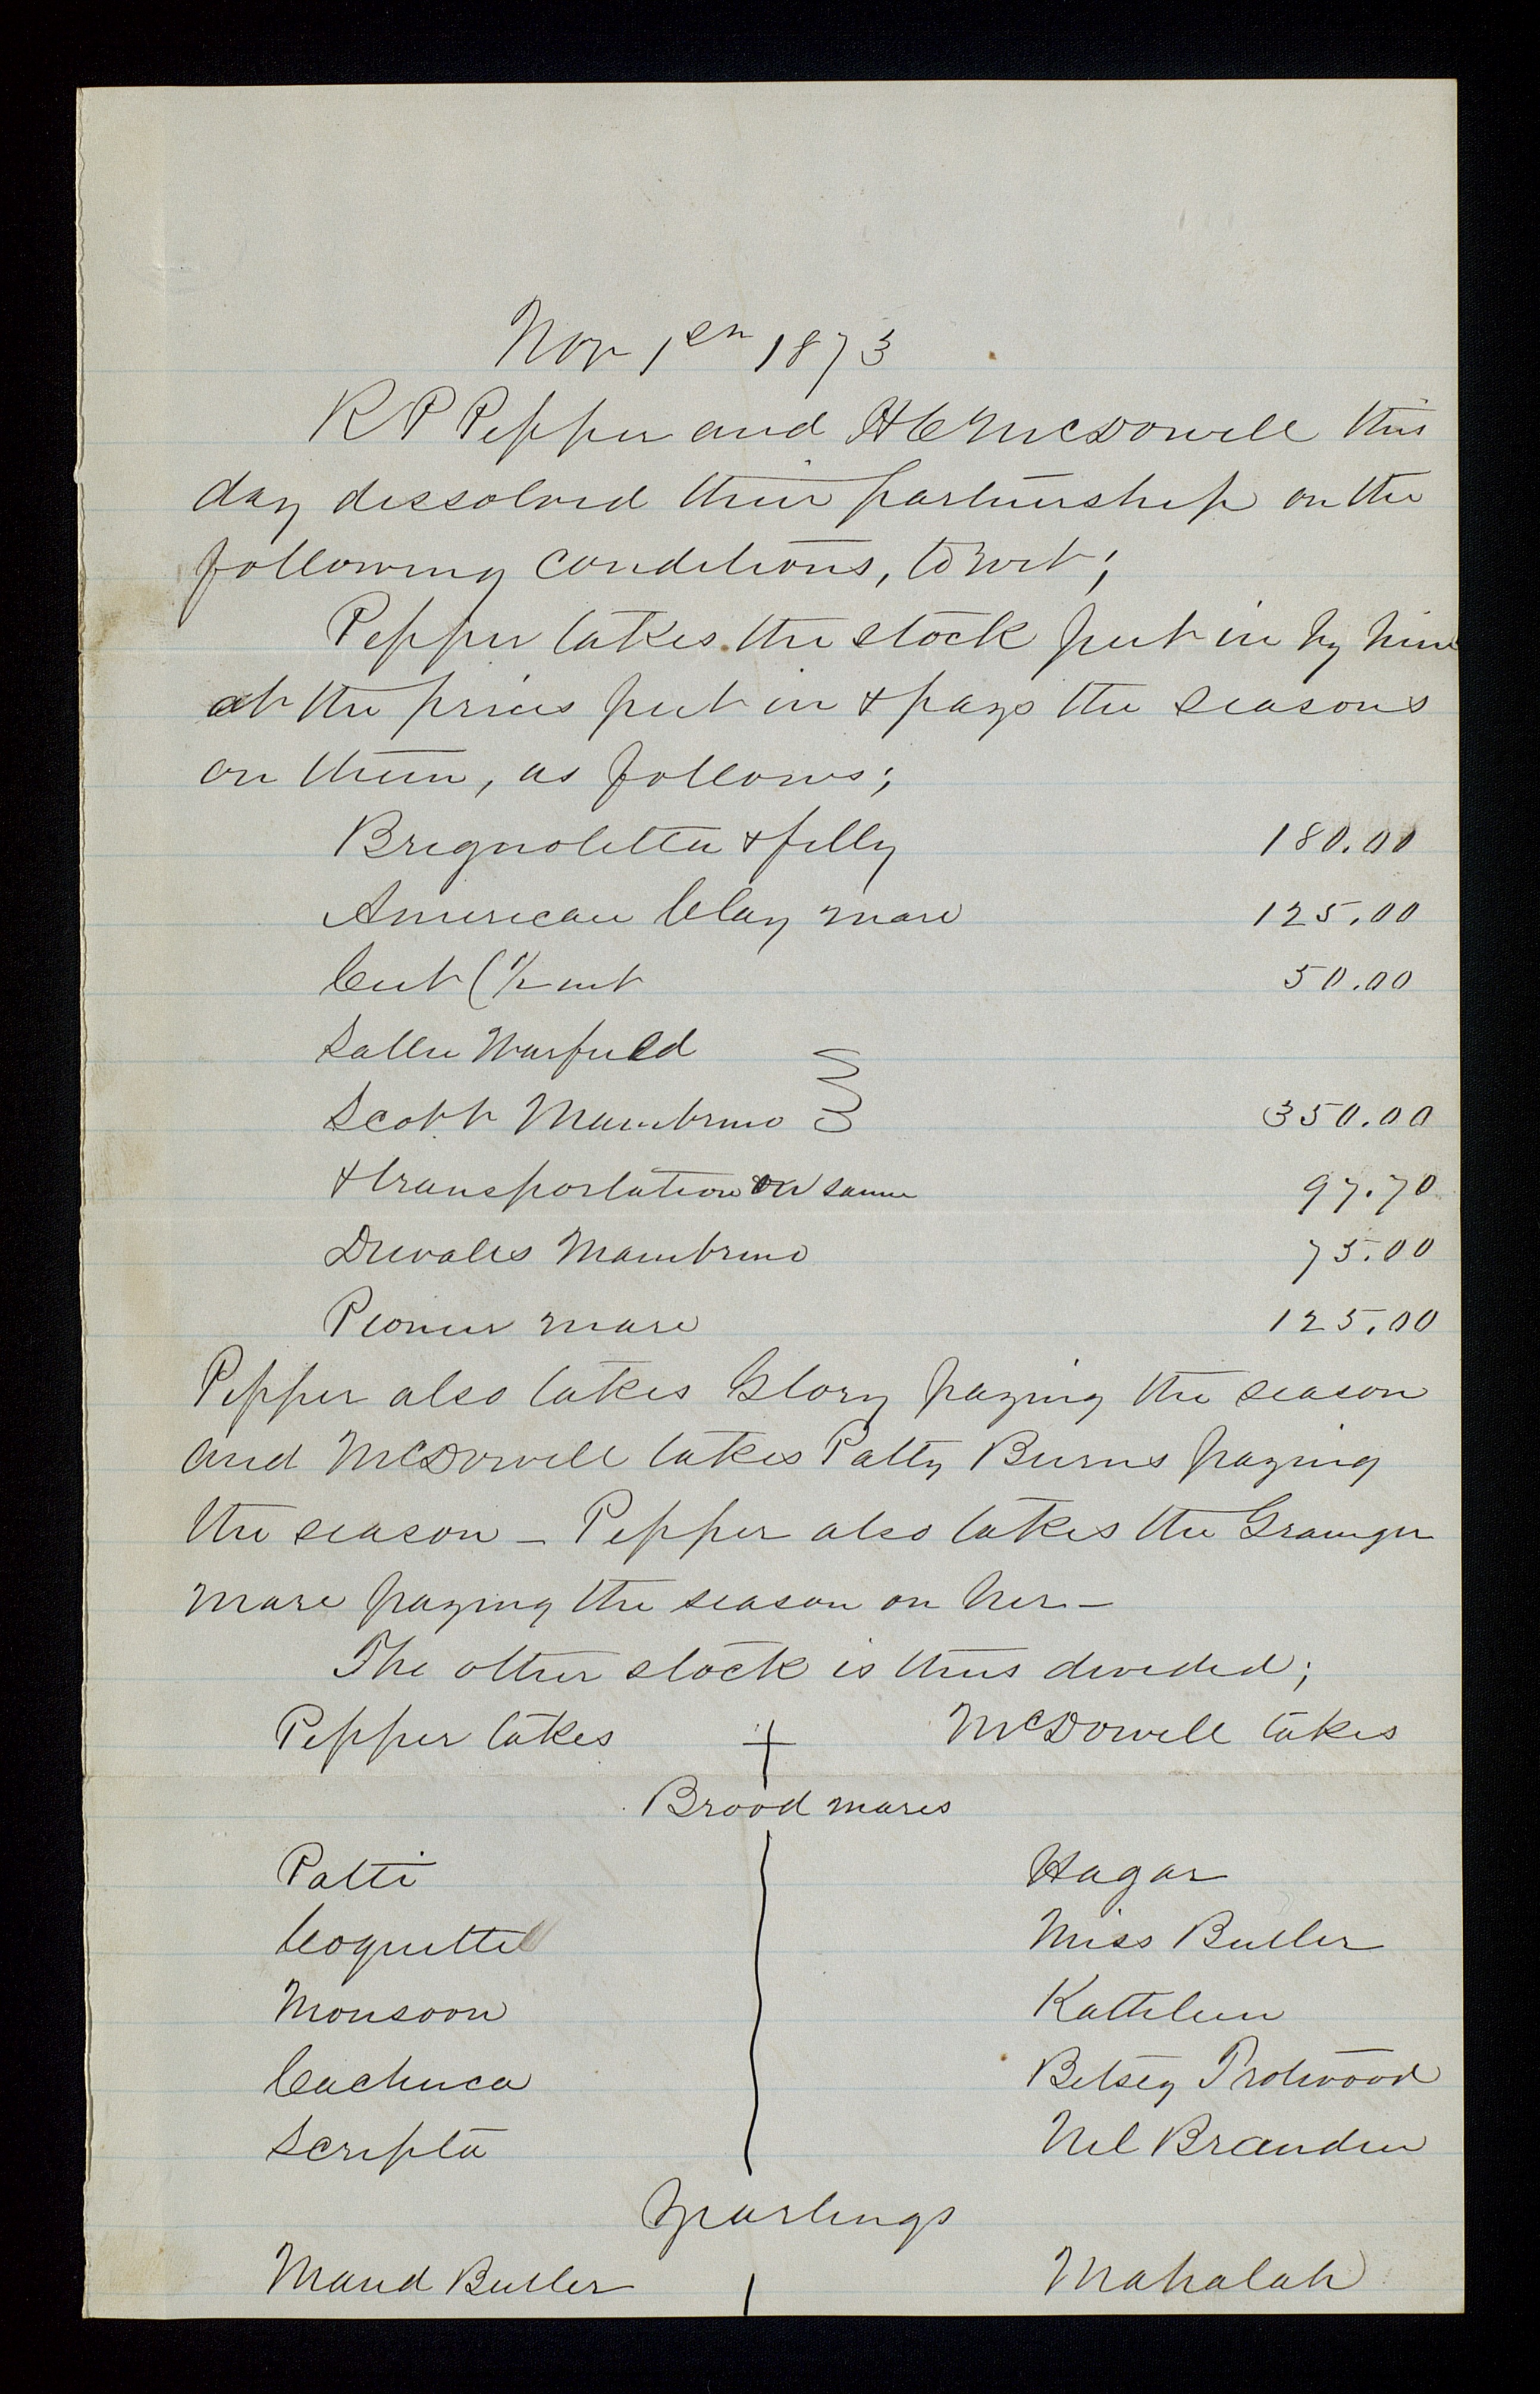 Nov 1st 1873
R P Pepper and H C McDowell this
day dissolved their partnership on the
following conditions, to wit;
Pepper takes the stock put in by him
at the prices put in & pays the seasons
on them, as follows;
Brignoletta & filly 180.00
American Clay mare 125.00
Cut (1/2 int 50.00
Sallie Warfield
Scott Mambrino 350.00
& transportation on same 97.70
Duvalls Mambrino 75.00
Pioneer mare 125.00
Pepper also takes Glory paying the season
and McDowell takes Patty Burns paying
the season - Pepper also takes the Grainger
mare paying the season on her -
The other stock is thus divided;
Pepper takes McDowell takes
Brood mares
Patti Hagar
Coquette Miss Butler
Monsoon Kathleen
Cachuca Betsey Trotwood
Scripta Nel Branden
Yearlings
Maud Butler Mahalah